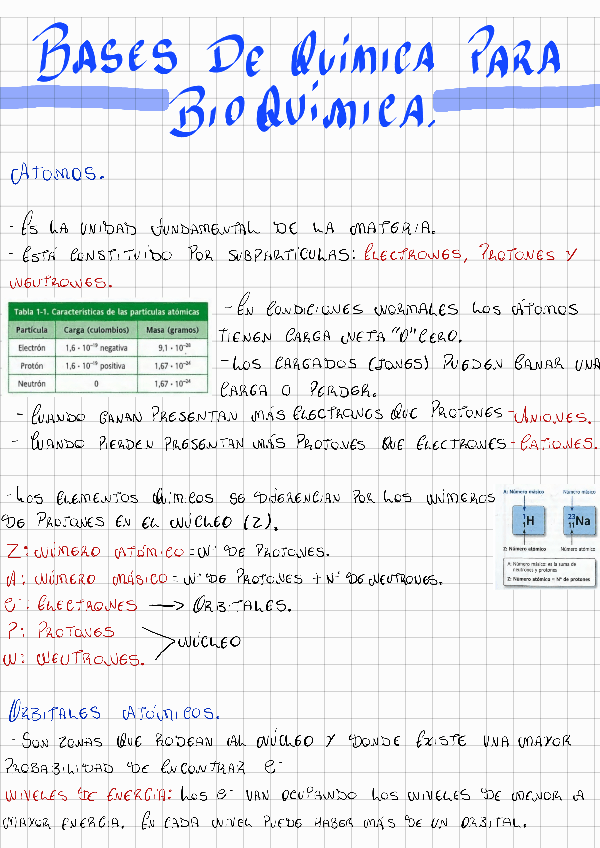 BASES DE QUÍMICA PARA
BIOQUÍMICA.
ÁTOMOS.
- ES LA UNIDAD FUNDAMENTAL DE LA MATERIA.
- ESTÁ CONSTITUIDO POR SUBPARTÍCULAS: ELECTRONES, PROTONES Y
NEUTRONES.
Tabla 1-1. Características de las partículas atómicas
Partícula Carga (culombios) Masa (gramos)
Electrón 1,6 · 10⁻¹⁹ negativa 9,1 · 10⁻²⁸
Protón 1,6 · 10⁻¹⁹ positiva 1,67 · 10⁻²⁴
Neutrón 0 1,67 · 10⁻²⁴
- EN CONDICIONES NORMALES LOS ÁTOMOS
TIENEN CARGA NETA "0" CERO.
- LOS CARGADOS (IONES) PUEDEN GANAR UNA
CARGA O PERDER.
- CUANDO GANAN PRESENTAN MÁS ELECTRONES QUE PROTONES - ANIONES.
- CUANDO PIERDEN PRESENTAN MÁS PROTONES QUE ELECTRONES - CATIONES.
- LOS ELEMENTOS QUIMCOS SE DIFERENCIAN POR LOS NÚMEROS
DE PROTONES EN EL NÚCLEO (Z).
A: Número másico Número másico
1 1 H 23 11 Na
Z: Número atómico Número atómico
A: Número másico: es la suma de
neutrones y protones
Z: Número atómico = Nº de protones
Z: NÚMERO ATÓMICO = Nº DE PROTONES.
A: NÚMERO MÁSICO = Nº DE PROTONES + Nº DE NEUTRONES.
e⁻: ELECTRONES → ORBITALES.
P: PROTONES
NÚCLEO
N: NEUTRONES.
ORBITALES ATÓMICOS.
- SON ZONAS QUE RODEAN AL NÚCLEO Y DONDE EXISTE UNA MAYOR
PROBABILIDAD DE ENCONTRAR e⁻
NIVELES DE ENERGÍA: LOS e⁻ VAN OCUPANDO LOS NIVELES DE MENOR A
MAYOR ENERGIA. EN CADA NIVEL PUEDE HABER MÁS DE UN ORBITAL.